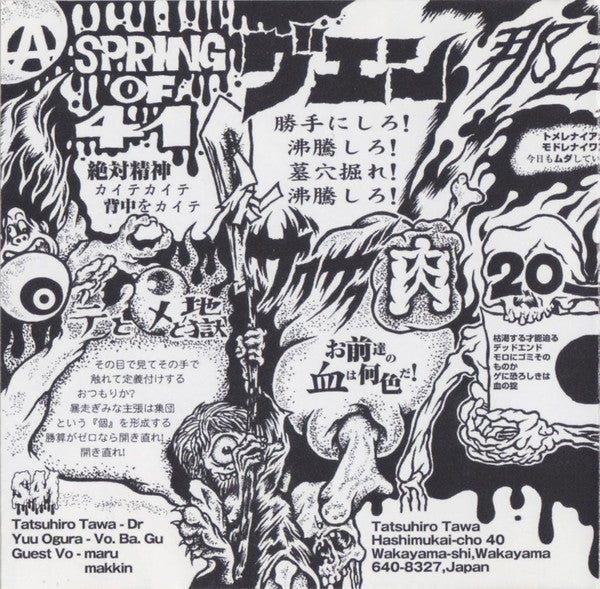 A
SPRING
OF
41
絶対精神
カイテカイテ
背中をカイテ
ヴエン
勝手にしろ!
沸騰しろ!
墓穴掘れ!
沸騰しろ!
トメレナイア
モドレナイワ
今日もムダしてい
テとメと地獄
その目で見てその手で
触れて定義付けする
おつもりか?
暴走ぎみな主張は集団
という『個』を形成する
勝算がゼロなら開き直れ!
開き直れ!
肉
お前達の
血は何色だ!
20
枯渇する才能迫る
デッドエンド
モロにゴミその
ものか
ゲに恐ろしきは
血の掟
S41
Tatsuhiro Tawa - Dr
Yuu Ogura - Vo. Ba. Gu
Guest Vo - maru
makkin
Tatsuhiro Tawa
Hashimukai-cho 40
Wakayama-shi,Wakayama
640-8327,Japan